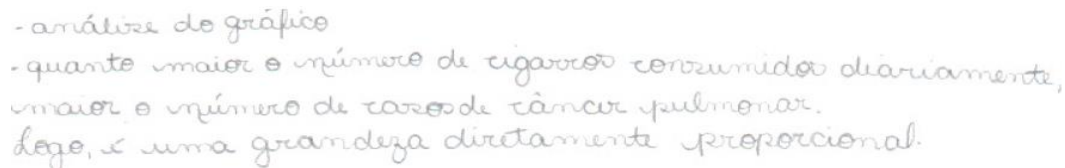 - análise do gráfico
- quanto maior o número de cigarros consumidos diariamente,
maior o número de casos de câncer pulmonar.
Logo, é uma grandeza diretamente proporcional.